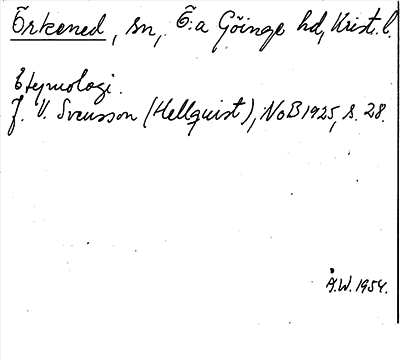 Örkened, sn, Ö:a Göinge hd, Krist. l.
Etymologi.
J. V. Svensson (Hellquist), NoB 1925, s. 28.
Å.W. 1954.